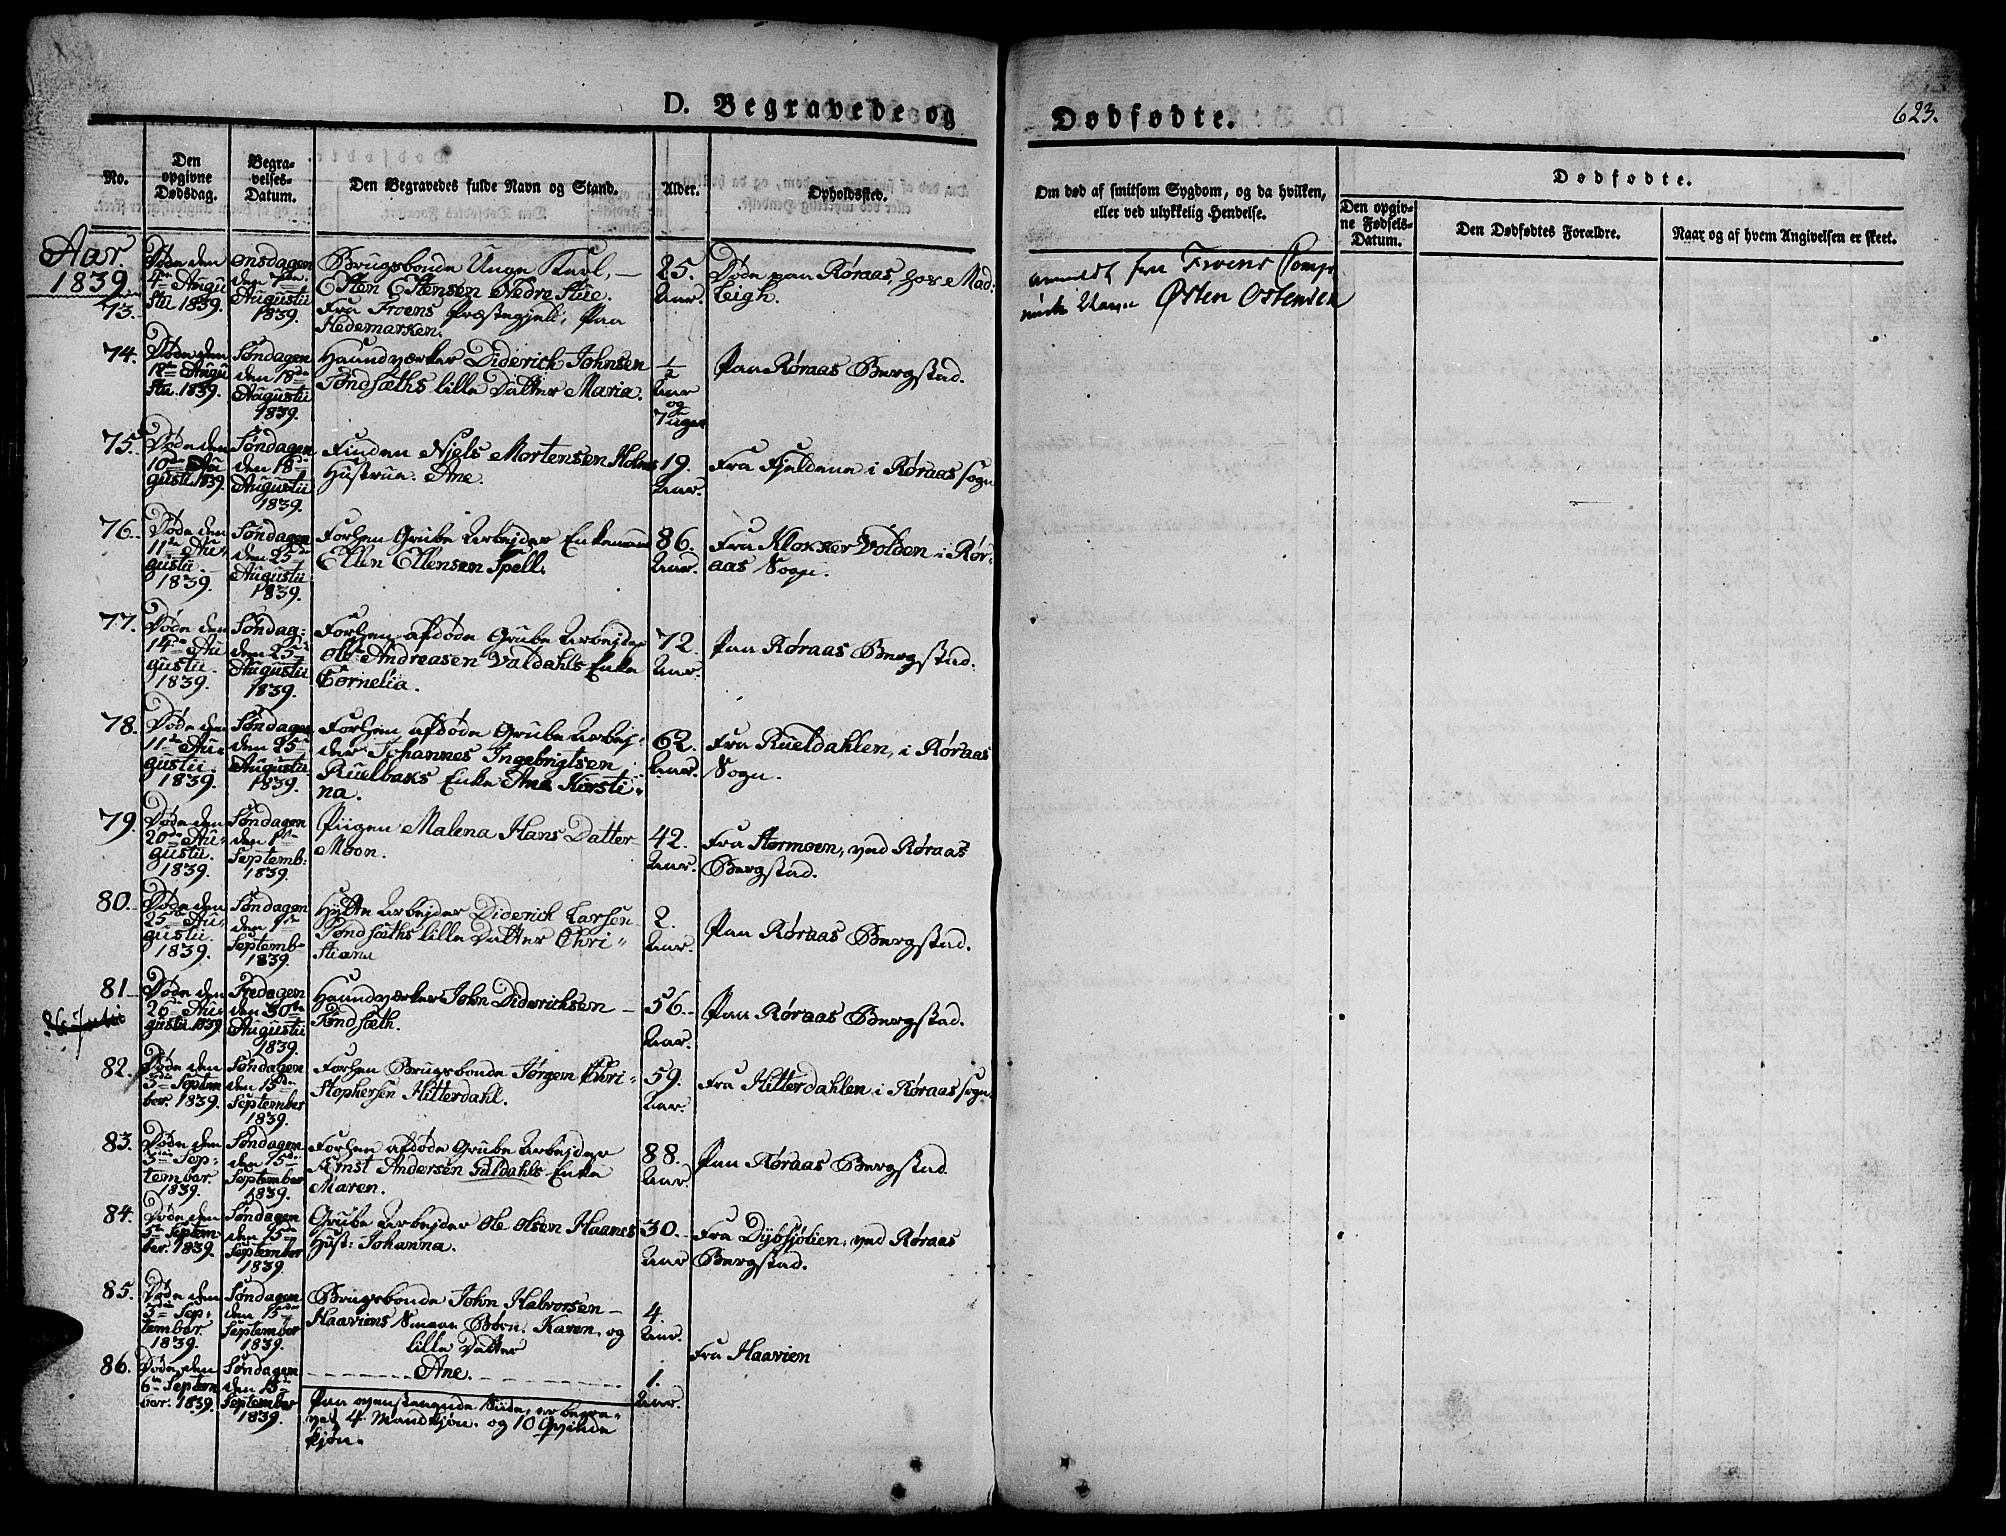 D. Begravede og
Dødfødte.
623.
No.
Den opgivne Dødsdag.
Begravelses-Datum.
Den Begravedes fulde Navn og Stand.
Alder.
Opholdssted.
Om død af smitsom Sygdom, og da hvilken,
eller ved ulykkelig Hendelse.
Dødfødte.
Den opgivne Fødsels-Datum.
Den Dødfødtes Forældre.
Naar og af hvem Angivelsen er skeet.
Aar
1839
73.
Døde den
4de Augu
stii 1839.
Onsdagen
den 7de
Augustii
1839.
Brugsbonde Unge Karl,
Esten Estensen Nedre Stue.
Fra Froens Præstegjeld, paa
Hedemarken.
25.
Aar.
Døde paa Røraas, hos Mad:
Leigh.
anmeldt fra Froens
Østen Ostensen
74.
Døde den
18de Augu
stii. 1839.
Søndagen
den 18de
Augustii
1839.
Haandværker Diderich Johnsen
Tøndsæths lille Datter Maria.
1/2
Aar
og
7 uger
Paa Røraas Bergstad.
75.
Døde den
10de Au
gustii. 1839.
Søndagen
den 18de
Augustii
1839.
Finden Njels Mortensen Holms
Hustrue. Ane.
19.
Aar.
Fra Fjeldene i Røraas sogn
76.
Døde den
11te Au:
gustii.
1839.
Søndagen
den 25de
Augustii
1839.
Forhen Grube Arbejder Enkemand
Ellen Ellensen Spell.
86.
Aar.
Fra Klokker Volden i Rør-
aas Sogn.
77.
Døde den
14de Au
gustii.
1839.
Søndag:
den 25de
Augustii
1839.
Forhen afdøde Grube Arbejder
Ole Andreasen Valdahls Enke
Cornelia.
72.
Aar.
Paa Røraas Bergstad.
78.
Døde den
11te Au
gustii.
1839.
Søndagen
den 25de
Augustii
1839.
Forhen afdøde Grube Arbej-
der Johannes Ingebrigtsen
Ruelbaks Enke Ane Kirsti-
na.
62.
Aar.
Fra Rueldahlen, i Røraas
Sogn.
79.
Døde den
20de Au:
gustii.
1839.
Søndagen
den 1ste
Septemb:
1839.
Piigen Malena Hans Datter
Moon.
42.
Aar.
Fra Stormoen, ved Røraas
Bergstad.
80.
Døde den
25de Au
gustii.
1839.
Søndagen
den 1ste
Septemb-
1839.
Hytte Arbejder Diderich Larsen
Tøndsæths lille Datter Chri-
stiana
2.
Aar.
Paa Røraas Bergstad.
81.
Døde den
26de Au:
gustii. 1839
Fredagen
den 30te
Augustii
1839.
Haandværker John Diderichsen
Tøndsæth.
56.
Aar.
Paa Røraas Bergstad.
82.
Døde den
3die Septem
ber. 1839.
Søndagen
den 15de
September
1839.
Forhen Brugsbonde Jørgen Chri-
stophersen Hitterdahl.
59.
Aar.
Fra Hitterdahlen i Røraas sogn.
83.
Døde den
3die Sep-
tember
1839.
Søndagen
den 15de
September
1839.
Forhen afdøde Grube Arbejder
Arnst Andersen Galdahls Enke
Maren.
88.
Aar.
Paa Røraas Bergstad
84.
Døde den
5te Septem
ber. 1839.
Søndagen
den 15de
September
1839.
Grube Arbejder Ole Olsen Haanes
Hust: Johanna.
30.
Aar
Fra Dybsjølien, ved Røraas
Bergstad.
85.
Døde den
3die Sep:
tember.
1839.
Søndagen
den 15de
September
1839.
Brugsbonde John Halvorsen
Haaviens Smaae Børn. Karen, og
lille Datter
4.
Aar.
Fra Haavien
86.
Døde den
6te Septem
ber. 1839.
Søndagen
den 15de
September
1839.
Ane.
1.
Aar.
Paa ovenstaaende Side, er begra-
vet 4 Mandkjøn. og 10 Qvinde
kjøn.